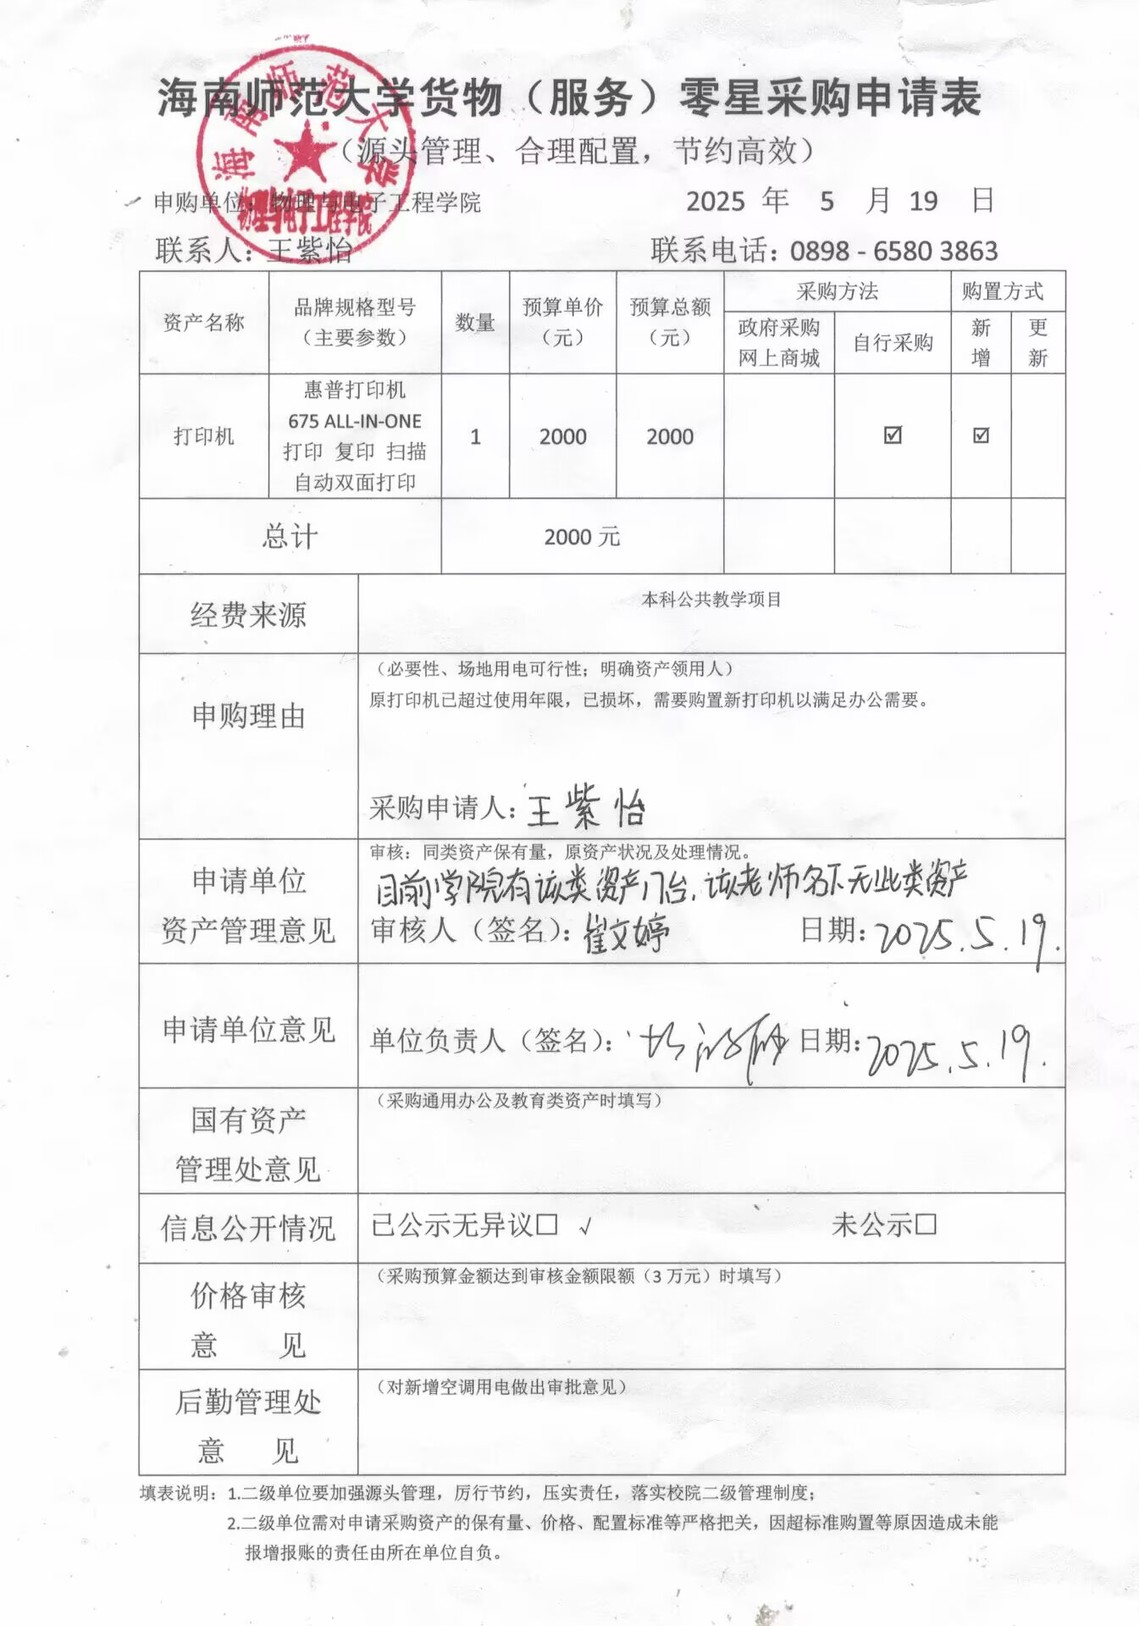 海南师范大学货物（服务）零星采购申请表
（源头管理、合理配置，节约高效）
海南师范大学
物理与电子工程学院
申购单位：物理与电子工程学院 2025 年 5 月 19 日
联系人：王紫怡 联系电话：0898 - 6580 3863
资产名称 品牌规格型号（主要参数） 数量 预算单价（元） 预算总额（元） 采购方法 购置方式
政府采购网上商城 自行采购 新增 更新
打印机 惠普打印机 1 2000 2000 ☑ ☑
675 ALL-IN-ONE
打印 复印 扫描
自动双面打印
总计 2000 元
经费来源 本科公共教学项目
申购理由 （必要性、场地用电可行性；明确资产领用人）
原打印机已超过使用年限，已损坏，需要购置新打印机以满足办公需要。
采购申请人：王紫怡
申请单位资产管理意见 审核：同类资产保有量，原资产状况及处理情况。
目前学院有该类资产 台，该老师名下无此类资产
审核人（签名）：崔文婷 日期：2025.5.19.
申请单位意见 单位负责人（签名）： 日期：2025.5.19.
国有资产管理处意见 （采购通用办公及教育类资产时填写）
信息公开情况 已公示无异议□ √ 未公示□
价格审核意 见 （采购预算金额达到审核金额限额（3 万元）时填写）
后勤管理处意 见 （对新增空调用电做出审批意见）
填表说明：1.二级单位要加强源头管理，厉行节约，压实责任，落实校院二级管理制度；
2.二级单位需对申请采购资产的保有量、价格、配置标准等严格把关，因超标准购置等原因造成未能
报增报账的责任由所在单位自负。